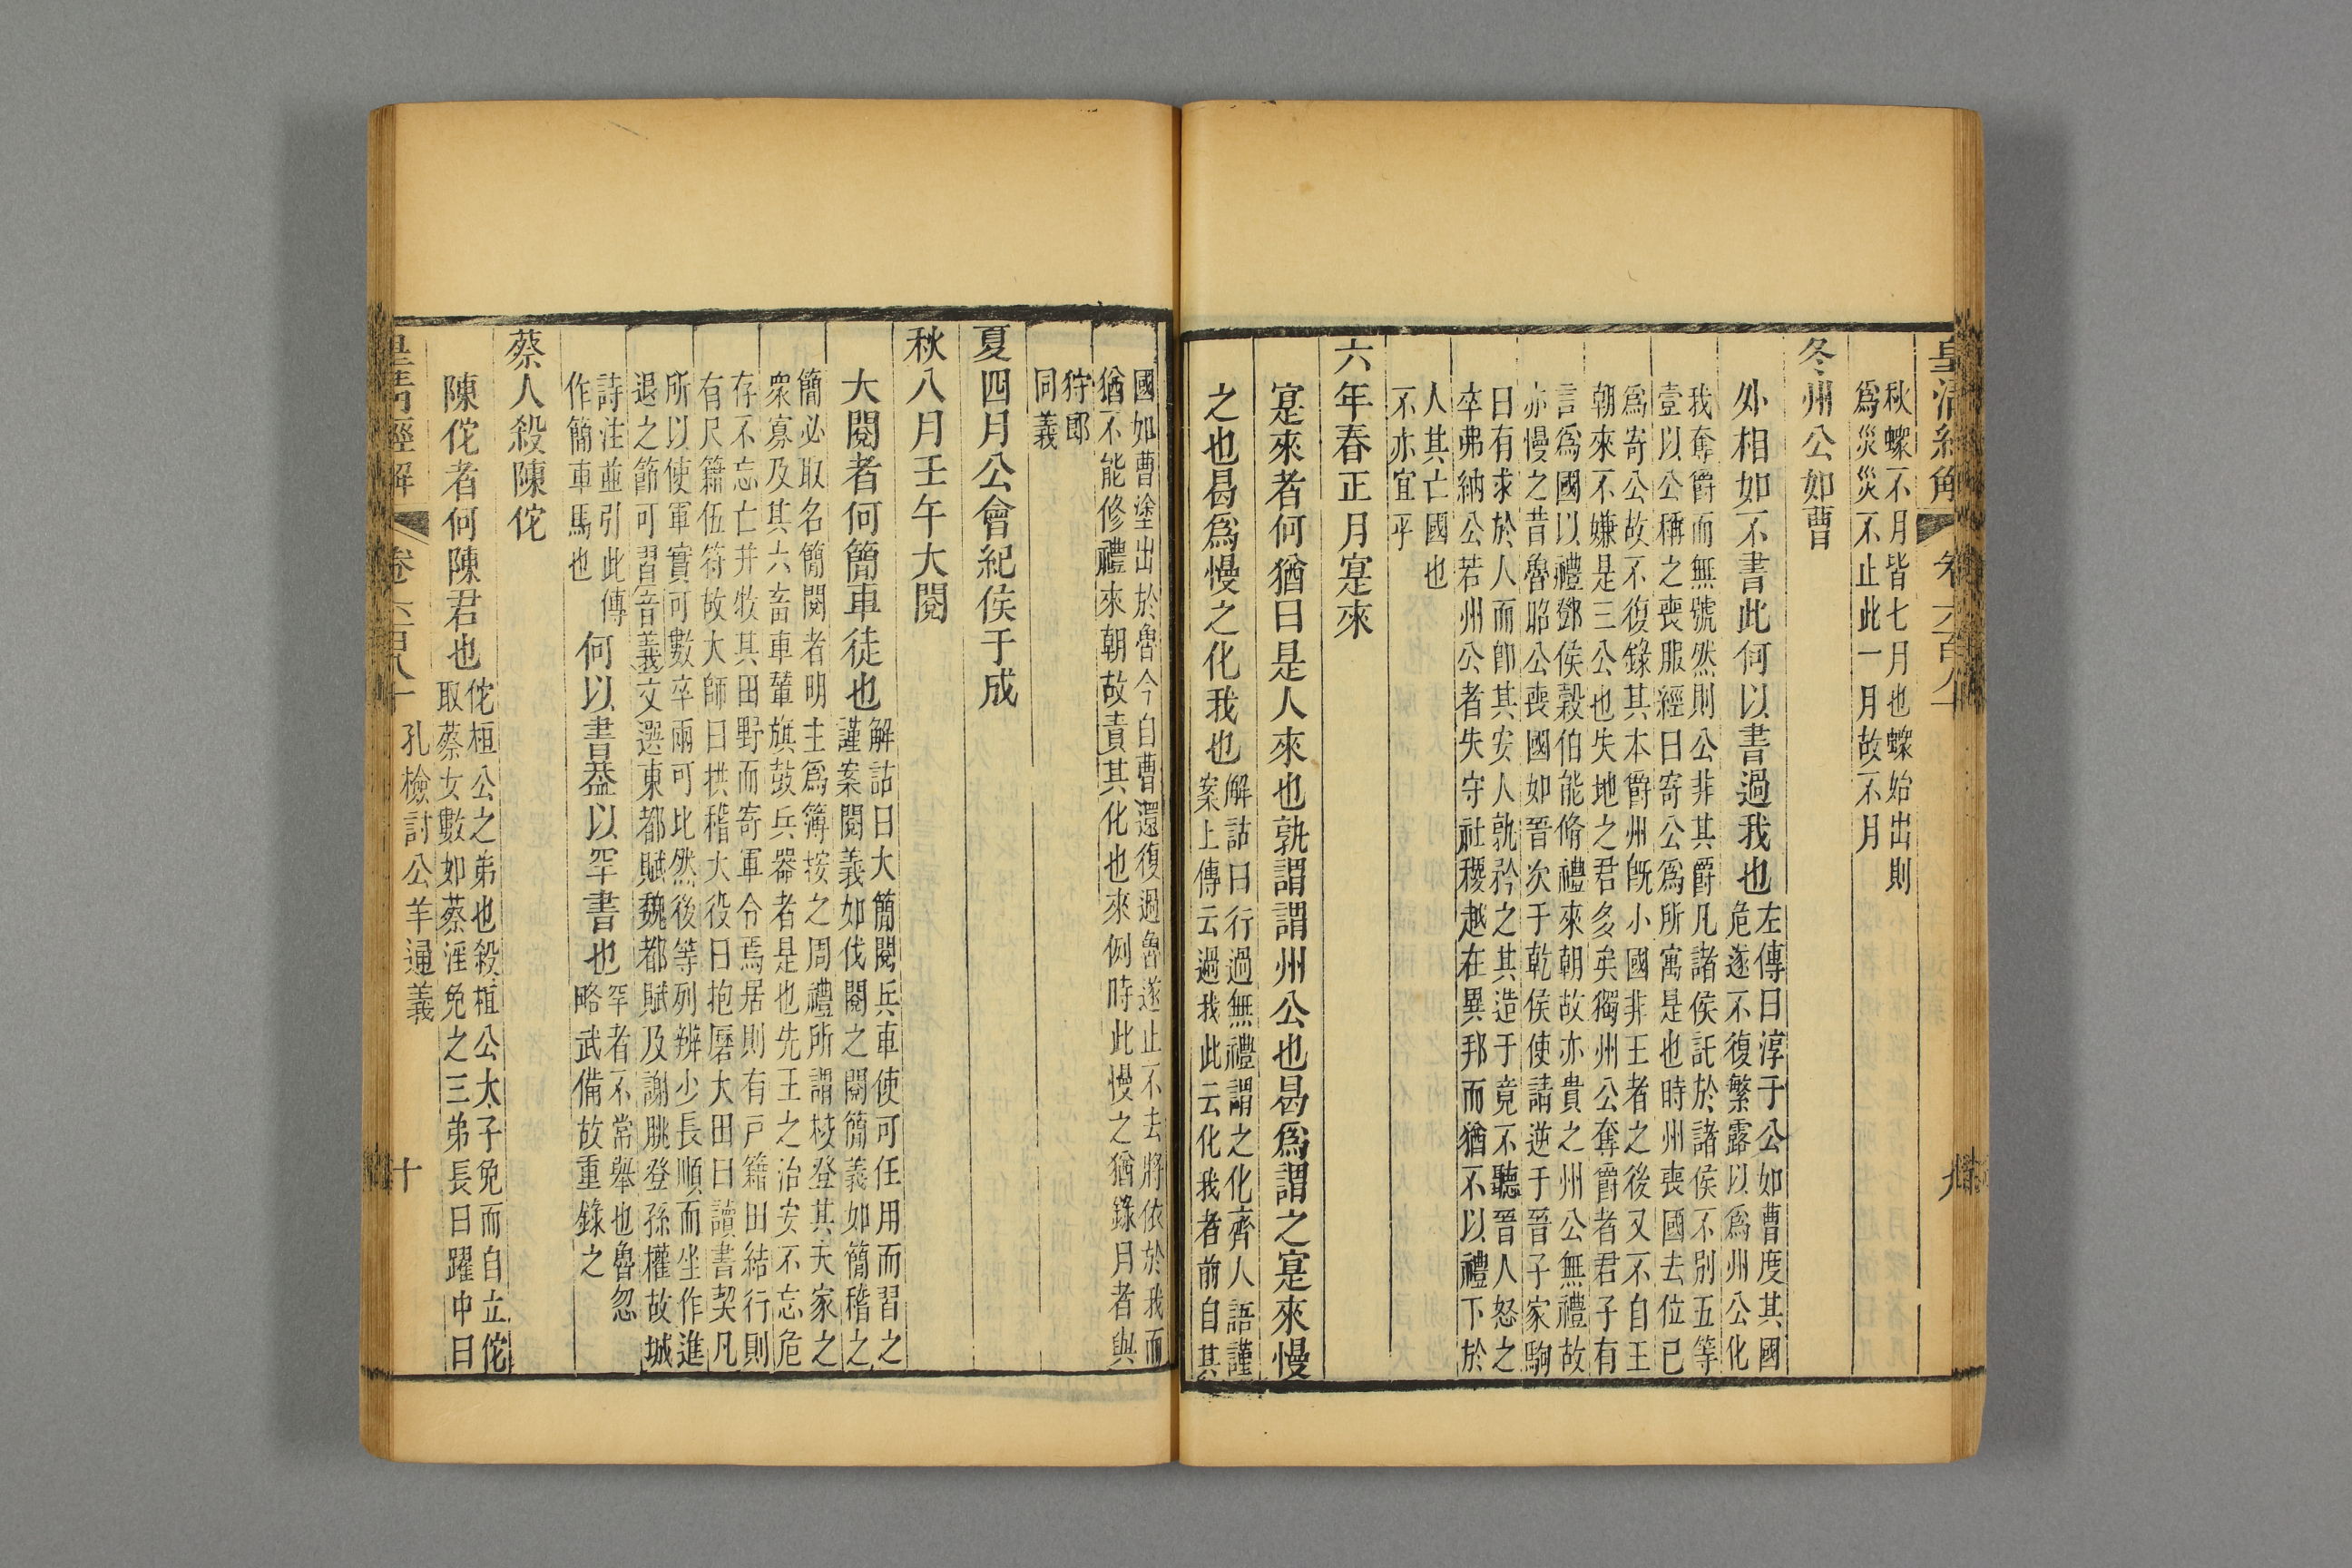 皇清經解
卷六百八十
九
秋螽不月皆七月也螽始出則
爲災災不止此一月故不月
冬州公如曹
外相如不書此何以書過我也
左傳曰淳于公如曹度其國
危遂不復繁露以爲州公化
我奪爵而無號然則公非其爵凡諸侯託於諸侯不別五等
壹以公稱之喪服經曰寄公爲所寓是也時州喪國去位已
爲寄公故不復錄其本爵州既小國非王者之後又不自王
朝來不嫌是三公也失地之君多矣獨州公奪爵者君子有
言爲國以禮鄧侯榖伯能脩禮來朝故亦貴之州公無禮故
亦慢之昔魯昭公喪國如晉次于乾侯使請逆于晉子家駒
曰有求於人而卽其安人孰矜之其造于竟不聽晉人怒之
卒弗納公若州公者失守社稷越在異邦而猶不以禮下於
人其亡國也
不亦宜乎
六年春正月寔來
寔來者何猶曰是人來也孰謂謂州公也曷爲謂之寔來慢
之也曷爲慢之化我也
解詁曰行過無禮謂之化齊人語謹
案上傳云過我此云化我者前自其
國如曹塗出於魯今自曹還復過魯遂止不去將依於我而
猶不能修禮來朝故責其化也來例時此慢之猶錄月者與
狩郎
同義
夏四月公會紀侯于成
秋八月壬午大閱
大閱者何簡車徒也
解詁曰大簡閱兵車使可任用而習之
謹案閱義如伐閱之閱簡義如簡稽之
簡必取名簡閱者明主爲簿按之周禮所謂校登其夫家之
衆寡及其六畜車輦旗鼓兵器者是也先王之治安不忘危
存不忘亡井牧其田野而寄軍令焉居則有戸籍田結行則
有尺籍伍符故大師曰拱稽大役曰抱磿大田曰讀書契凡
所以使軍實可數卒兩可比然後等列辨少長順而坐作進
退之節可習音義文選東都賦魏都賦及謝朓登孫權故城
詩注並引此傳
作簡車馬也
何以書葢以罕書也
罕者不常舉也魯忽
略武備故重錄之
蔡人殺陳佗
陳佗者何陳君也
佗桓公之弟也殺桓公太子免而自立佗
取蔡女數如蔡淫免之三弟長曰躍中曰
皇清經解
卷六百八十
孔檢討公羊通義
十